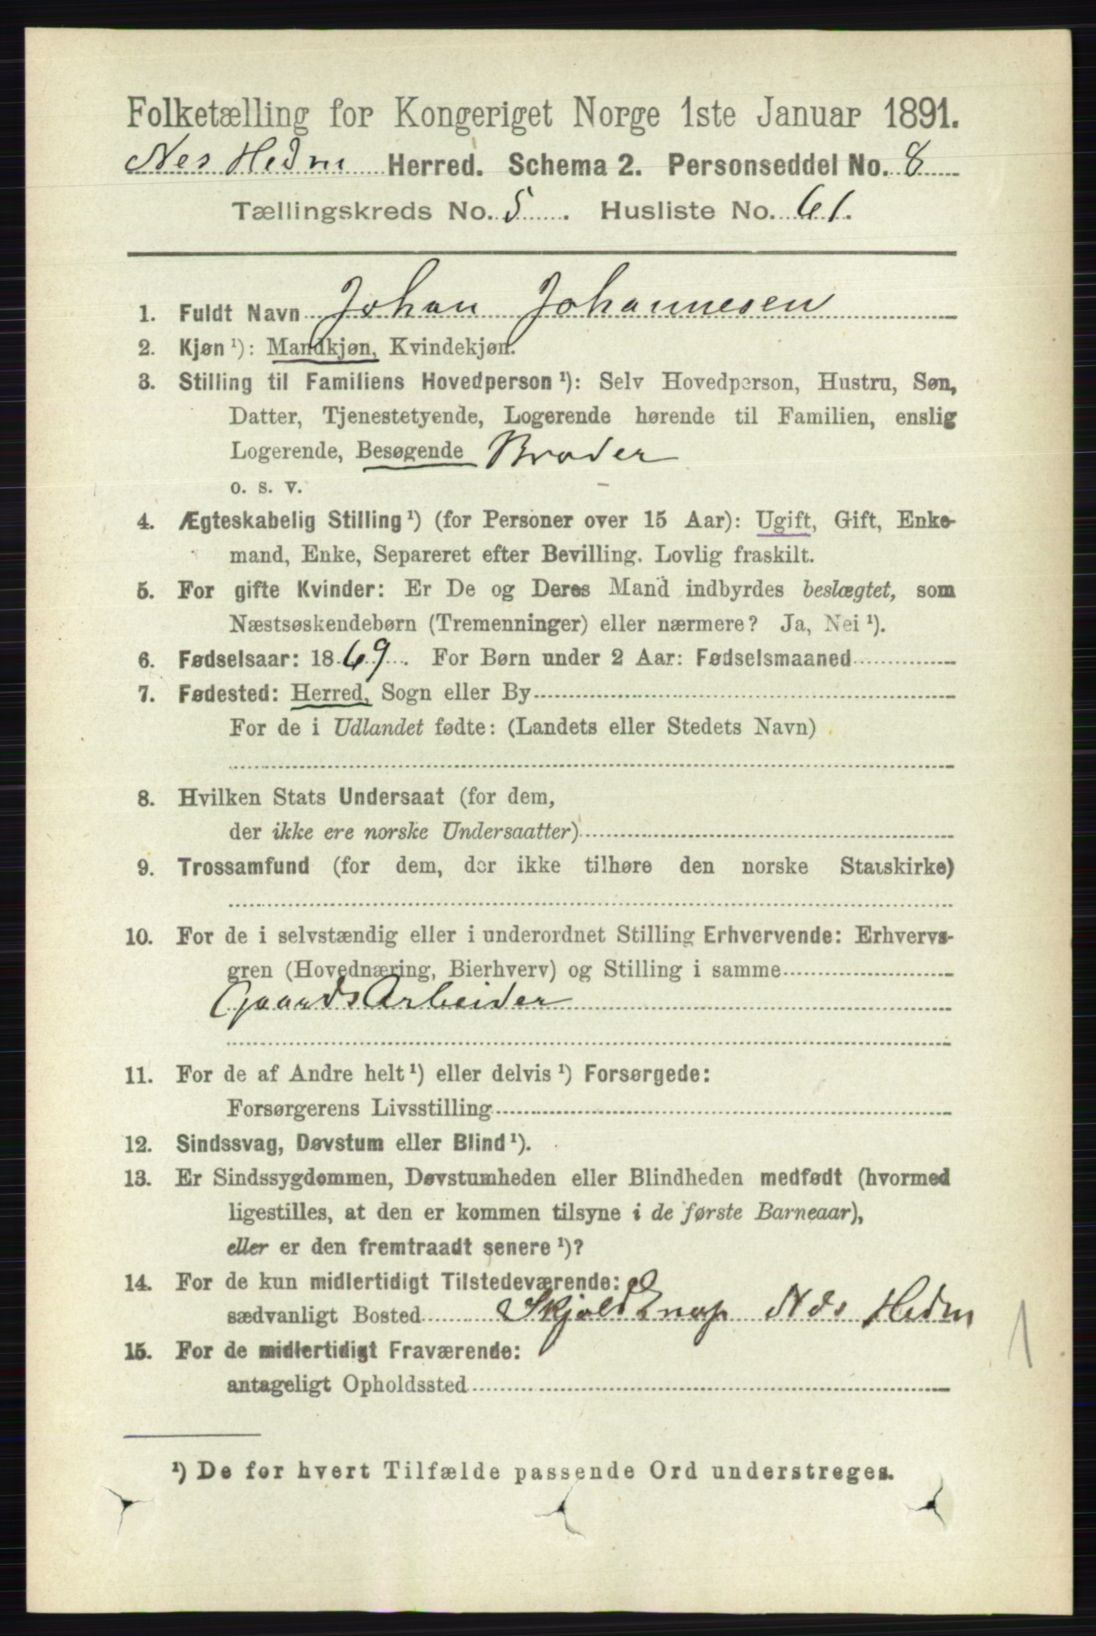 Folketælling for Kongeriget Norge 1ste Januar 1891.
Nes Hedm Herred. Schema 2. Personseddel No. 8
Tællingskreds No. 5. Husliste No. 61.
1. Fuldt Navn Johan Johannesen
2. Kjøn ¹): Mandkjøn, Kvindekjøn.
3. Stilling til Familiens Hovedperson ¹): Selv Hovedperson, Hustru, Søn,
Datter, Tjenestetyende, Logerende hørende til Familien, enslig
Logerende, Besøgende Broder
o. s. v.
4. Ægteskabelig Stilling ¹) (for Personer over 15 Aar): Ugift, Gift, Enke-
mand, Enke, Separeret efter Bevilling. Lovlig fraskilt.
5. For gifte Kvinder: Er De og Deres Mand indbyrdes beslægtet, som
Næstsøskendebørn (Tremenninger) eller nærmere? Ja, Nei ¹).
6. Fødselsaar: 1869. For Børn under 2 Aar: Fødselsmaaned
7. Fødested: Herred, Sogn eller By
For de i Udlandet fødte: (Landets eller Stedets Navn)
8. Hvilken Stats Undersaat (for dem,
der ikke ere norske Undersaatter)
9. Trossamfund (for dem, der ikke tilhøre den norske Statskirke)
10. For de i selvstændig eller i underordnet Stilling Erhvervende: Erhvervs-
gren (Hovednæring, Bierhverv) og Stilling i samme
GaardsArbeider
11. For de af Andre helt ¹) eller delvis ¹) Forsørgede:
Forsørgerens Livsstilling
12. Sindssvag, Døvstum eller Blind ¹).
13. Er Sindssygdommen, Døvstumheden eller Blindheden medfødt (hvormed
ligestilles, at den er kommen tilsyne i de første Barneaar),
eller er den fremtraadt senere ¹)?
14. For de kun midlertidigt Tilstedeværende:
sædvanligt Bosted Nes Hedm
15. For de midlertidigt Fraværende:
antageligt Opholdssted
¹) De for hvert Tilfælde passende Ord understreges.